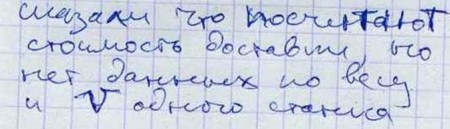 сказали что посчитают
стоимость доставки, но
нет данных по весу
и V одного станка